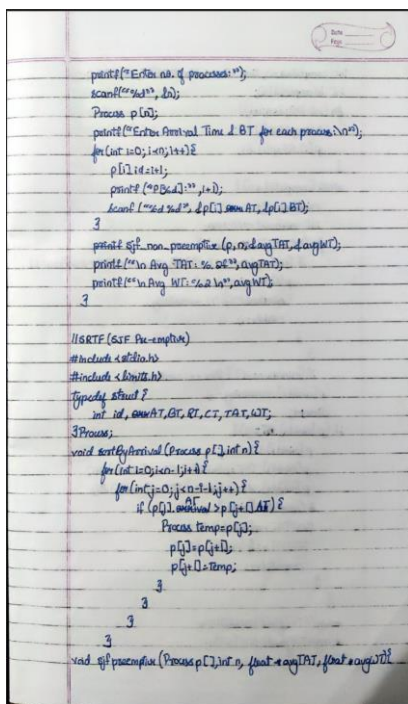 Date
Page
printf("Enter no. of processes:");
scanf("%d", &n);
Process p[n];
printf("Enter Arrival Time & BT for each process:\n");
for(int i=0; i<n; i++){
p[i].id=i+1;
printf("P[%d]:", i+1);
scanf("%d %d", &p[i].AT, &p[i].BT);
}
printf sjf_non_preemptive (p, n, &avgTAT, &avgWT);
printf("\n Avg TAT: %.2f", avgTAT);
printf("\n Avg WT: %.2 \n", avgWT);
}
//SRTF (SJF Pre-emptive)
#include <stdio.h>
#include <limits.h>
typedef struct {
int id, AT, BT, RT, CT, TAT, WT;
}Process;
void sortByArrival (Process p[], int n){
for(int i=0; i<n-1; i++){
for(int j=0; j<n-i-1; j++){
if (p[j].AT >p[j+1].AT){
Process temp=p[j];
p[j]=p[j+1];
p[j+1]=temp;
}
}
}
}
void sjf preemptive (Process p[], int n, float *avgTAT, float *avgWT){